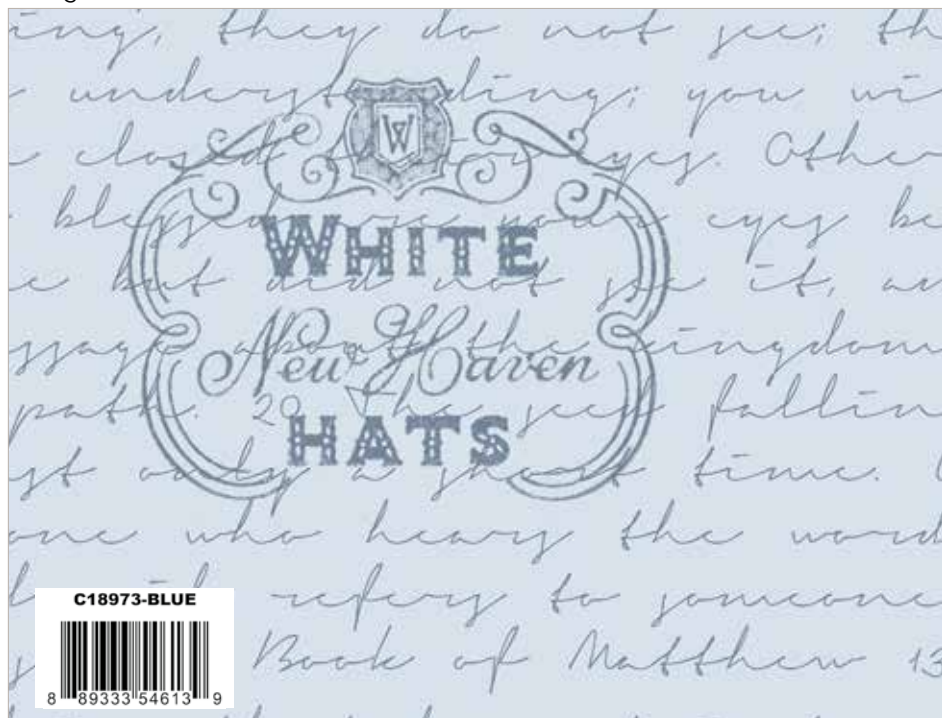 ing, they do not see; th
understanding; you wi
closed their eyes. Other
W
blessed are your eyes be
WHITE
e but did not see it, an
New Haven
ssage about the kingdom
path. 20 The seed fallin
HATS
st only a short time.
one who hears the word
C18973-BLUE
refers to someone
Book of Matthew 13
8 89333 54613 9